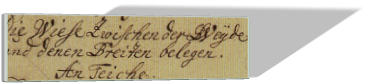 die Wiese Zwischen der Weyde
und denen Breiten belegen.
An Teiche.